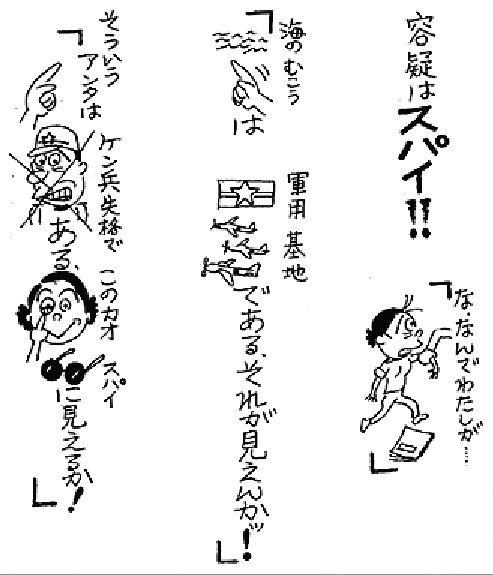 容疑はスパイ!!
「な、なんでわたしが……」
「海のむこうは
軍用基地
である、それが見えんかッ!」
「そういうアンタは
ケン兵失格で
ある、
このカオ
スパイ
に見えるか!」